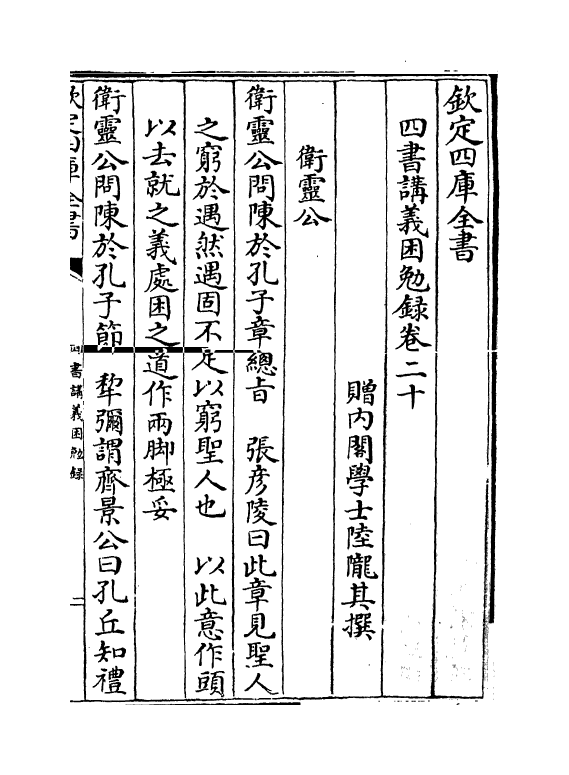 欽定四庫全書
四書講義困勉録卷二十
贈内閣學士陸隴其撰
衛靈公
衛靈公問陳於孔子章總旨　張彦陵曰此章見聖人
之窮於遇然遇固不足以窮聖人也　以此意作頭
以去就之義處困之道作兩脚極妥
衛靈公問陳於孔子節　犂彌謂齊景公曰孔丘知禮
欽定四庫全書
四書講義困勉録